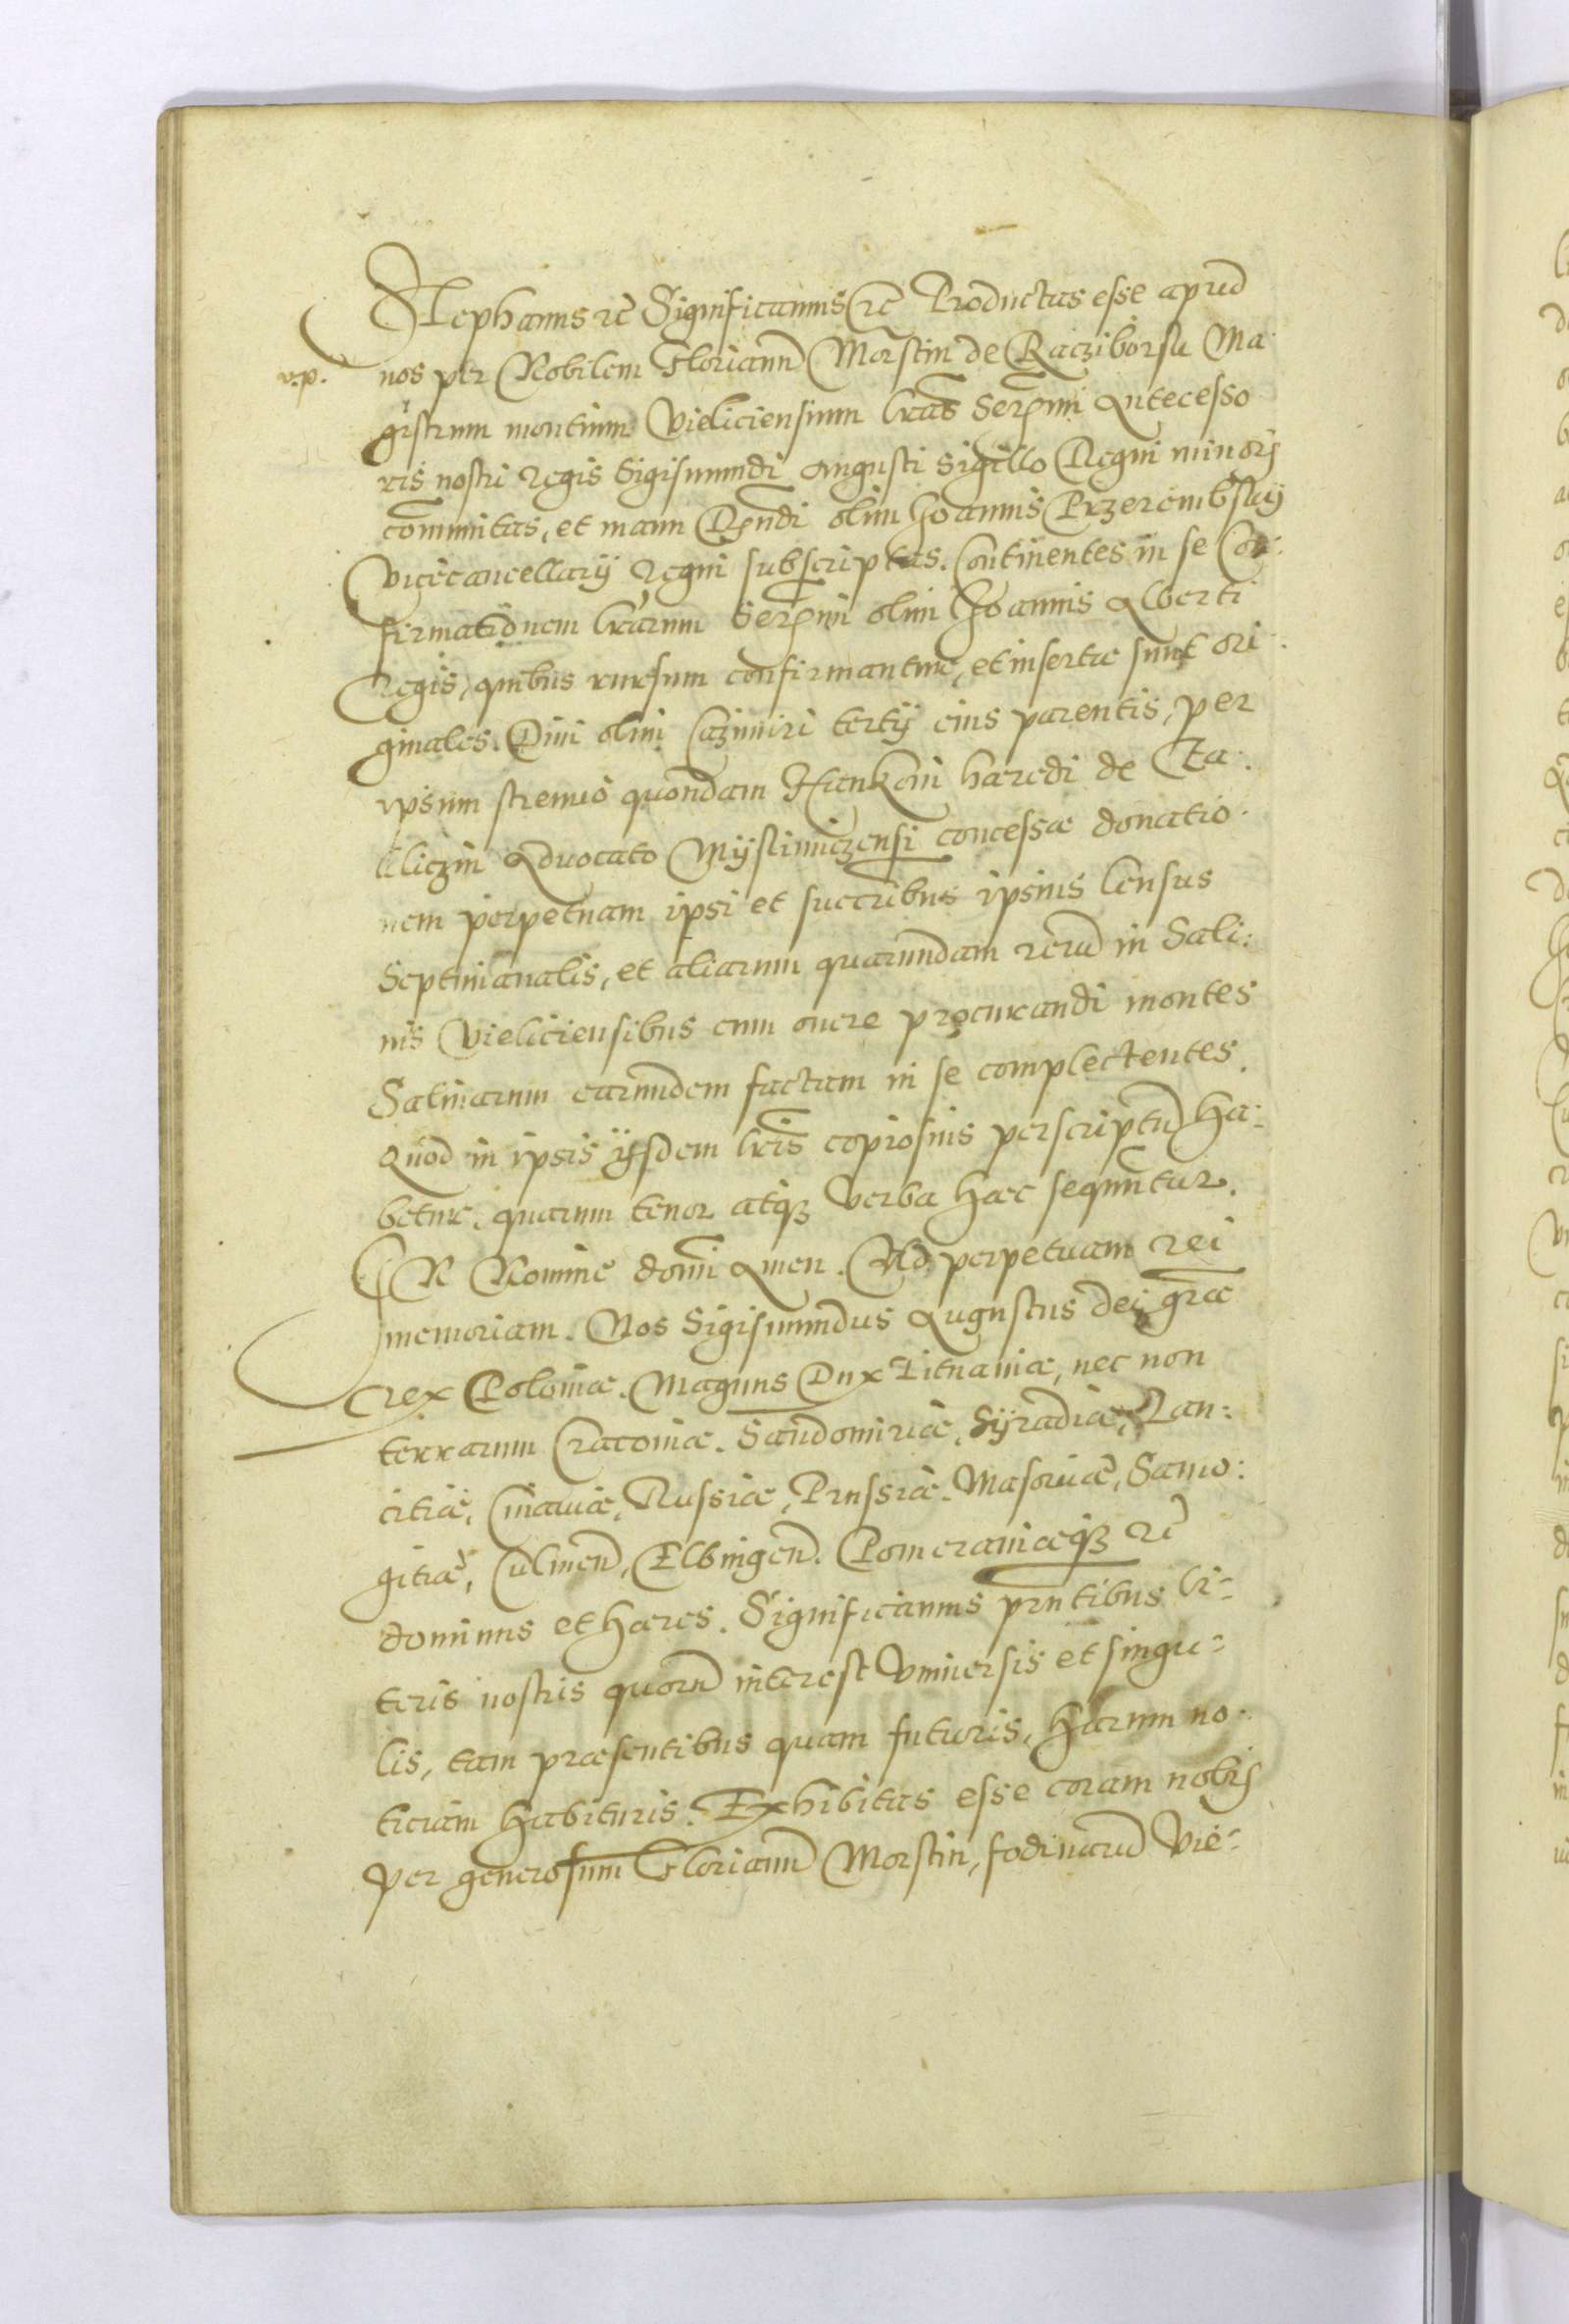 Stephanus rc̄ Significamus rc̄ Productas esse apud
v.p.
nos per Nobilem Florianū Morstin de Racziborsu Ma
gistrum montium Vieliciensium lr̄as Ser̄mi Antecesso
ris nostri Regis Sigismundi Augusti sigillo Regni minori
com̄unitas, et manu Rn̄di olim Joannis Przerembsky
Vicecancellarÿ Regni subscriptas. Continentes in se Con:
firmationem lr̄arum Ser̄mi olim Joannis Alberti
Regis, quibus rursum confirmantur, et insertae sunt ori
ginales. Divi olim Cazimiri tertÿ eius parentis, per
ipsum strenuo quondam Hankoni haeredi de Ta
liczin Advocato Mÿslimiczensi concessae donatio
nem perpetuam ipsi et succ̄ribus ipsius Census
Septimanalis, et aliarum quarundam rerū in Sali:
nis Vieliciensibus cum onere procurandi montes
Salinarum earundem factam in se complectentes.
Quod in ipsis ÿsdem lr̄is copiosius perscriptū ha:
betur. quarum tenor atq3 verba haec sequuntur.
IN Nomine domī Amen. Ad perpetuam rei
memoriam. Nos Sigismundus Augustus dei gr̄ae
rex Poloniae. Magnus Dux Lituaniae, nec non
terrarum Cracoviae. Sandomiriae, Sÿradiae, Lan:
citiae, Cuiaviae, Russiae, Prussiae. Masoviae, Samo:
gitiae, Culmen̄, Elbingen̄. Pomeraniaeq3 rc̄
dominus et haeres. Significamus pn̄tibus li:
teris nostris quorū interest Universis et singu:
lis, tam praesentibus quam futuris, harum no
ticiam habituris. Exhibitas esse coram nobis
per generosum Florianū Morstin, fodinarū Vie: